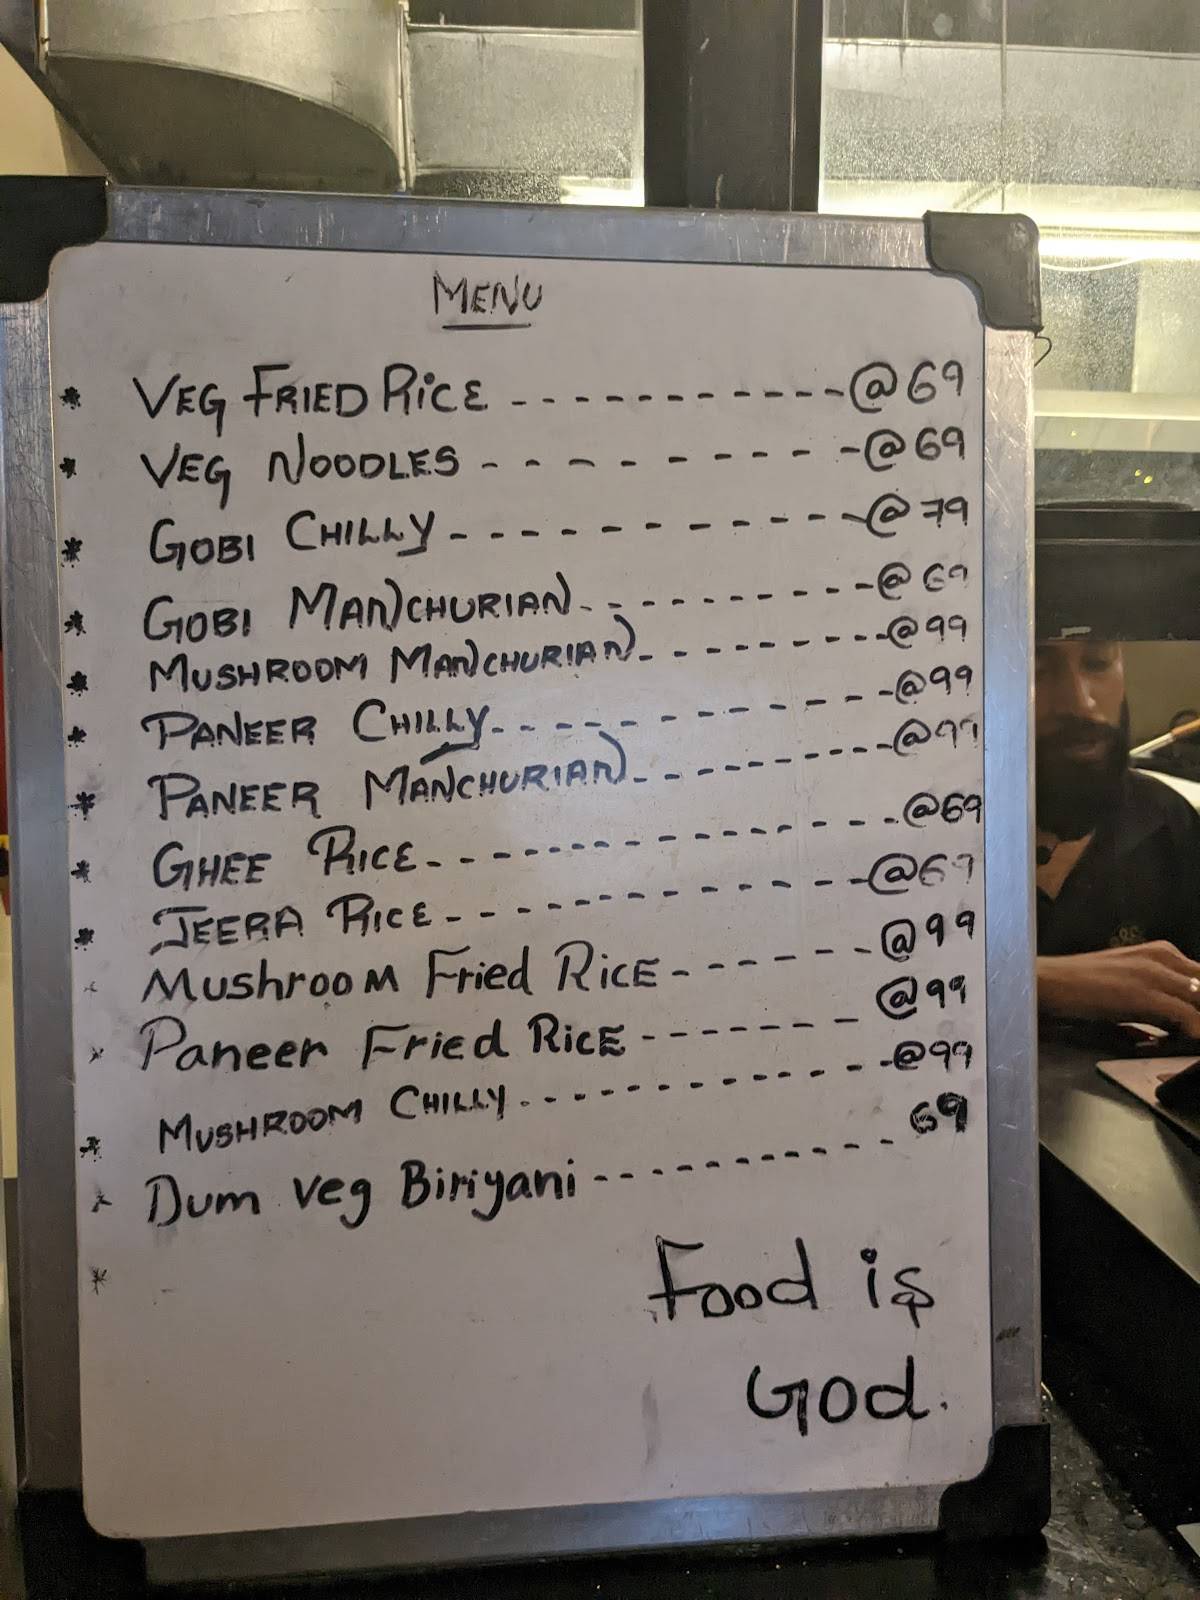 MENU
* VEG FRIED RICE -----------@69
* VEG NOODLES - - - - - - - - -@69
* GOBI CHILLY - - - - - - - - - - -@79
* GOBI MANCHURIAN - - - - - - - - - -@69
* MUSHROOM MANCHURIAN - - - - - - - -@99
* PANEER CHILLY - - - - - - - - - - - -@99
* PANEER MANCHURIAN - - - - - - - - -@99
* GHEE RICE - - - - - - - - - - - - - -@69
* JEERA RICE - - - - - - - - - - - - -@69
* MushrooM Fried RICE - - - - - - -@99
* Paneer Fried RICE - - - - - - - @99
* MUSHROOM CHILLY - - - - - - - - - - -@99
* Dum veg Biriyani - - - - - - - - - - - 69
*
Food is
God.